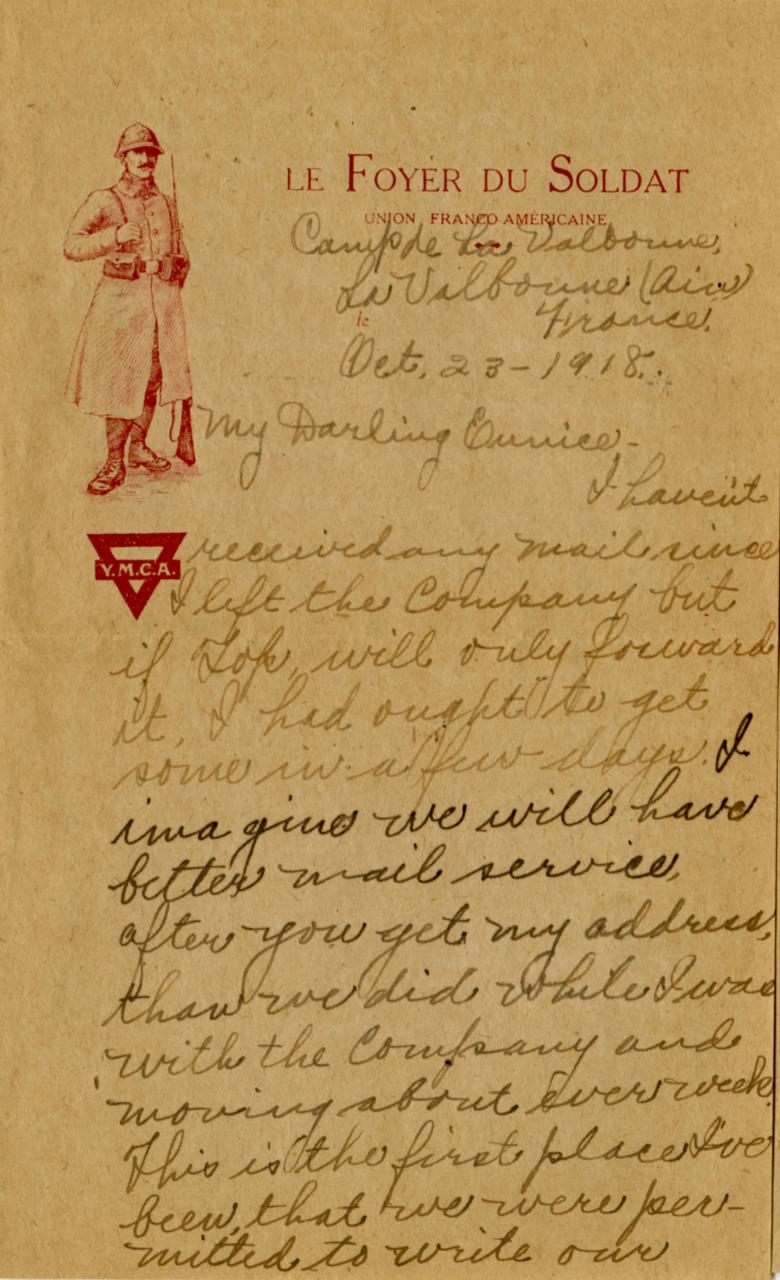 LE FOYER DU SOLDAT
UNION FRANCO-AMÉRICAINE
Camp de La Valbonne,
La Valbonne (Ain)
le France.
Oct. 23-1918.
My Darling Eunice-
I haven't
Y.M.C.A.
received any mail since
I left the Company but
if Top, will only forward
it, I had ought to get
some in a few days. I
imagine we will have
better mail service,
after you get my address,
than we did while I was
with the Company and
moving about ever week.
This is the first place I've
been, that we were per-
mitted to write our